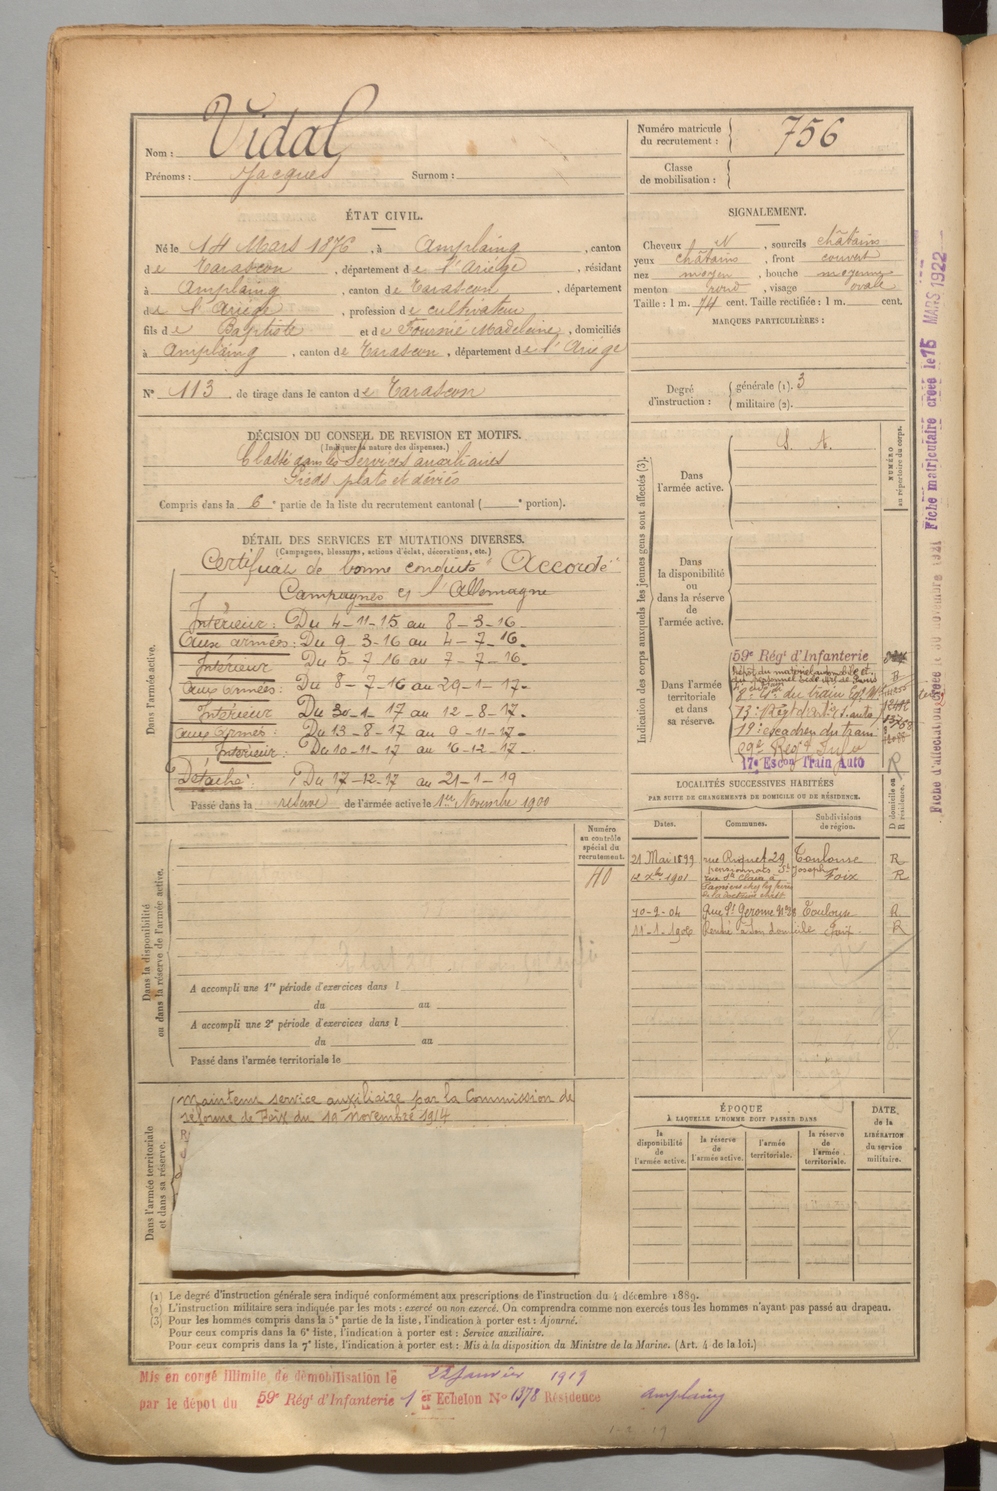 Nom : Vidal
Prénoms : Jacques Surnom :
Numéro matricule du recrutement : 756
Classe de mobilisation :
ÉTAT CIVIL.
Né le 14 Mars 1876, à Amplaing, canton
de Tarascon, département de l'Ariège, résidant
à Amplaing, canton de Tarascon, département
de l'Ariège, profession de cultivateur
fils de Baptiste et de Fournié Madeleine, domiciliés
à Amplaing, canton de Tarascon, département de l'Ariège
N° 113 de tirage dans le canton de Tarascon
SIGNALEMENT.
Cheveux N, sourcils châtains
yeux châtains, front couvert
nez moyen, bouche moyenne
menton rond, visage ovale
Taille : 1 m. 74 cent. Taille rectifiée : 1 m. cent.
MARQUES PARTICULIÈRES :
Degré d'instruction : générale (1). 3
militaire (2).
DÉCISION DU CONSEIL DE REVISION ET MOTIFS.
(Indiquer la nature des dispenses.)
Classé dans les Services auxiliaires
Pieds plats et déviés
Compris dans la 6e partie de la liste du recrutement cantonal ( e portion).
DÉTAIL DES SERVICES ET MUTATIONS DIVERSES.
(Campagnes, blessures, actions d'éclat, décorations, etc.)
Dans l'armée active.
Certificat de bonne conduite "Accordé"
Campagnes l'Allemagne
Intérieur : Du 4-11-15 au 8-3-16
Aux armées : Du 9-3-16 au 4-7-16.
Intérieur Du 5-7-16 au 7-7-16.
Aux armées : Du 8-7-16 au 29-1-17-
Intérieur Du 30-1-17 au 12-8-17.
Aux armées : Du 13-8-17 au 9-11-17-
Intérieur : Du 10-11-17 au 16-12-17-
Détaché : Du 17-12-17 au 21-1-19
Passé dans la réserve de l'armée active le 1er Novembre 1900
Indication des corps auxquels les jeunes gens sont affectés (3).
NUMÉRO au répertoire du corps.
Dans l'armée active.
S. A.
Dans la disponibilité ou dans la réserve de l'armée active.
Dans l'armée territoriale et dans sa réserve.
59e Régt d'Infanterie
17e Escon Train Auto
LOCALITÉS SUCCESSIVES HABITÉES
PAR SUITE DE CHANGEMENTS DE DOMICILE OU DE RÉSIDENCE.
Dates. Communes. Subdivisions de région. D domicile ou R résidence.
21 Mai 1899 rue Riquet 29 Toulouse R
pensionnats St Joseph
1901 rue Ste Claire à Foix R
Pamiers chez les frères
de la doctrine chrét
10-2-04 Rue St Gerome N° 28 Toulouse R
11-1-1906 Rentré à son domicile Foix R
Numéro au contrôle spécial du recrutement.
Dans la disponibilité ou dans la réserve de l'armée active.
A accompli une 1re période d'exercices dans l
du au
A accompli une 2e période d'exercices dans l
du au
Passé dans l'armée territoriale le
Dans l'armée territoriale et dans sa réserve.
Maintenu service auxiliaire par la Commission de
réforme de Foix du 19 Novembre 1914
ÉPOQUE
À LAQUELLE L'HOMME DOIT PASSER DANS
la disponibilité de l'armée active.
la réserve de l'armée active.
l'armée territoriale.
la réserve de l'armée territoriale.
DATE de la LIBÉRATION du service militaire.
(1) Le degré d'instruction générale sera indiqué conformément aux prescriptions de l'instruction du 4 décembre 1889.
(2) L'instruction militaire sera indiquée par les mots : exercé ou non exercé. On comprendra comme non exercés tous les hommes n'ayant pas passé au drapeau.
(3) Pour les hommes compris dans la 5e partie de la liste, l'indication à porter est : Ajourné.
Pour ceux compris dans la 6e liste, l'indication à porter est : Service auxiliaire.
Pour ceux compris dans la 7e liste, l'indication à porter est : Mis à la disposition du Ministre de la Marine. (Art. 4 de la loi.)
Mis en congé illimité de démobilisation le 22 Janvier 1919
par le dépôt du 59e Régt d'Infanterie 1er Echelon No 1378 Résidence Amplaing
Fiche matriculaire créée le 15 MARS 1922